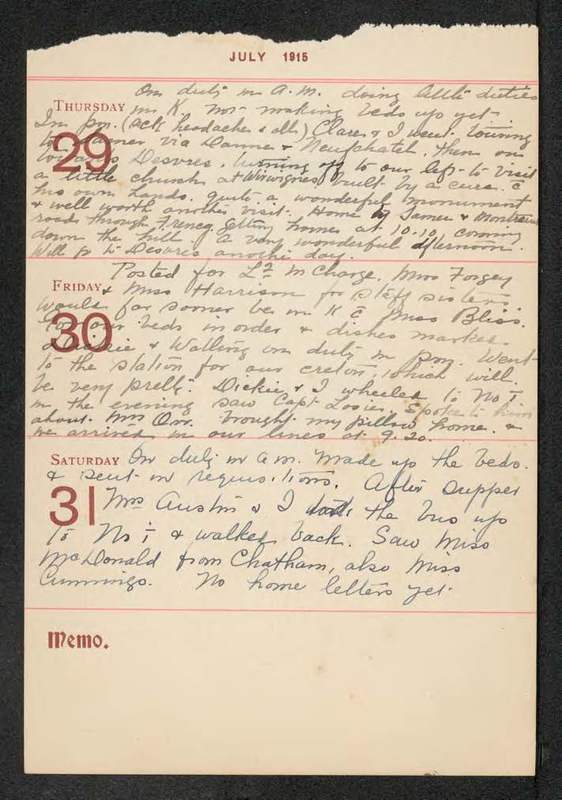 JULY 1915
On duty in A.M. doing little duties
THURSDAY in K. Not making beds up yet.
29
In pm. (sick headaches & all) Clare & I went touring
to Samer via Dannes & Neufchatel, then on
towards Desvres, turning off to our left to visit
a little church at Wirwignes built by a cure. c̄
his own hands. Quite a wonderful monument
& well worth another visit. Home by Samer & Montreuil
road through Frencq getting home at 10.10, coming
down the hill. A very wonderful afternoon.
Will go to Desvres another day.
FRIDAY Posted for L2 in charge. Miss Forgey
30
& Miss Harrison for staff sisters.
Would far sooner be in K c̄ Miss Bliss.
Got our beds in order & dishes marked.
Dickie & Walling on duty in pm. Went
to the station for our creton, which will
be very pretty. Dickie & I wheeled to No 1
in the evening saw Capt. Losier. Spoke to him
about Mrs Orr. Brought my pillow home. &
we arrived in our lines at 9.20.
SATURDAY On duty in a.m. Made up the beds.
31
& sent in requisitions. After supper
Mrs Austin & I took the bus up
to No 1 & walked back. Saw Miss
McDonald from Chatham, also Miss
Cummings. No home letters yet.
Memo.